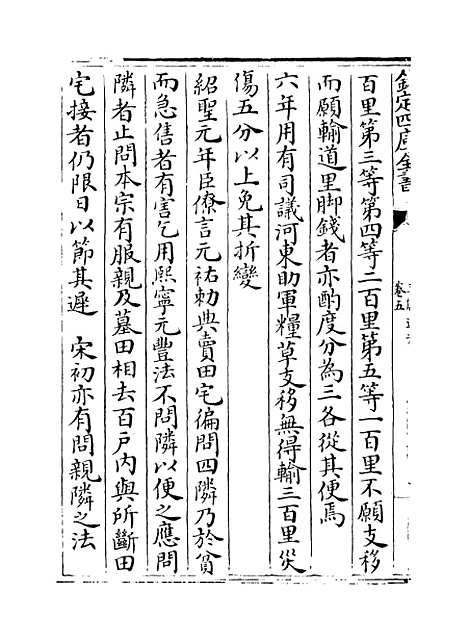 欽定四庫全書
卷五
百里第三等第四等二百里第五等一百里不願支移
而願輸道里脚錢者亦酌度分為三各從其便焉
六年用有司議河東助軍糧草支移無得輸三百里災
傷五分以上免其折變
紹聖元年臣僚言元祐勅典賣田宅徧問四隣乃於貧
而急售者有害乞用熙寧元豐法不問隣以便之應問
隣者止問本宗有服親及墓田相去百户内與所斷田
宅接者仍限日以節其遲 宋初亦有問親隣之法